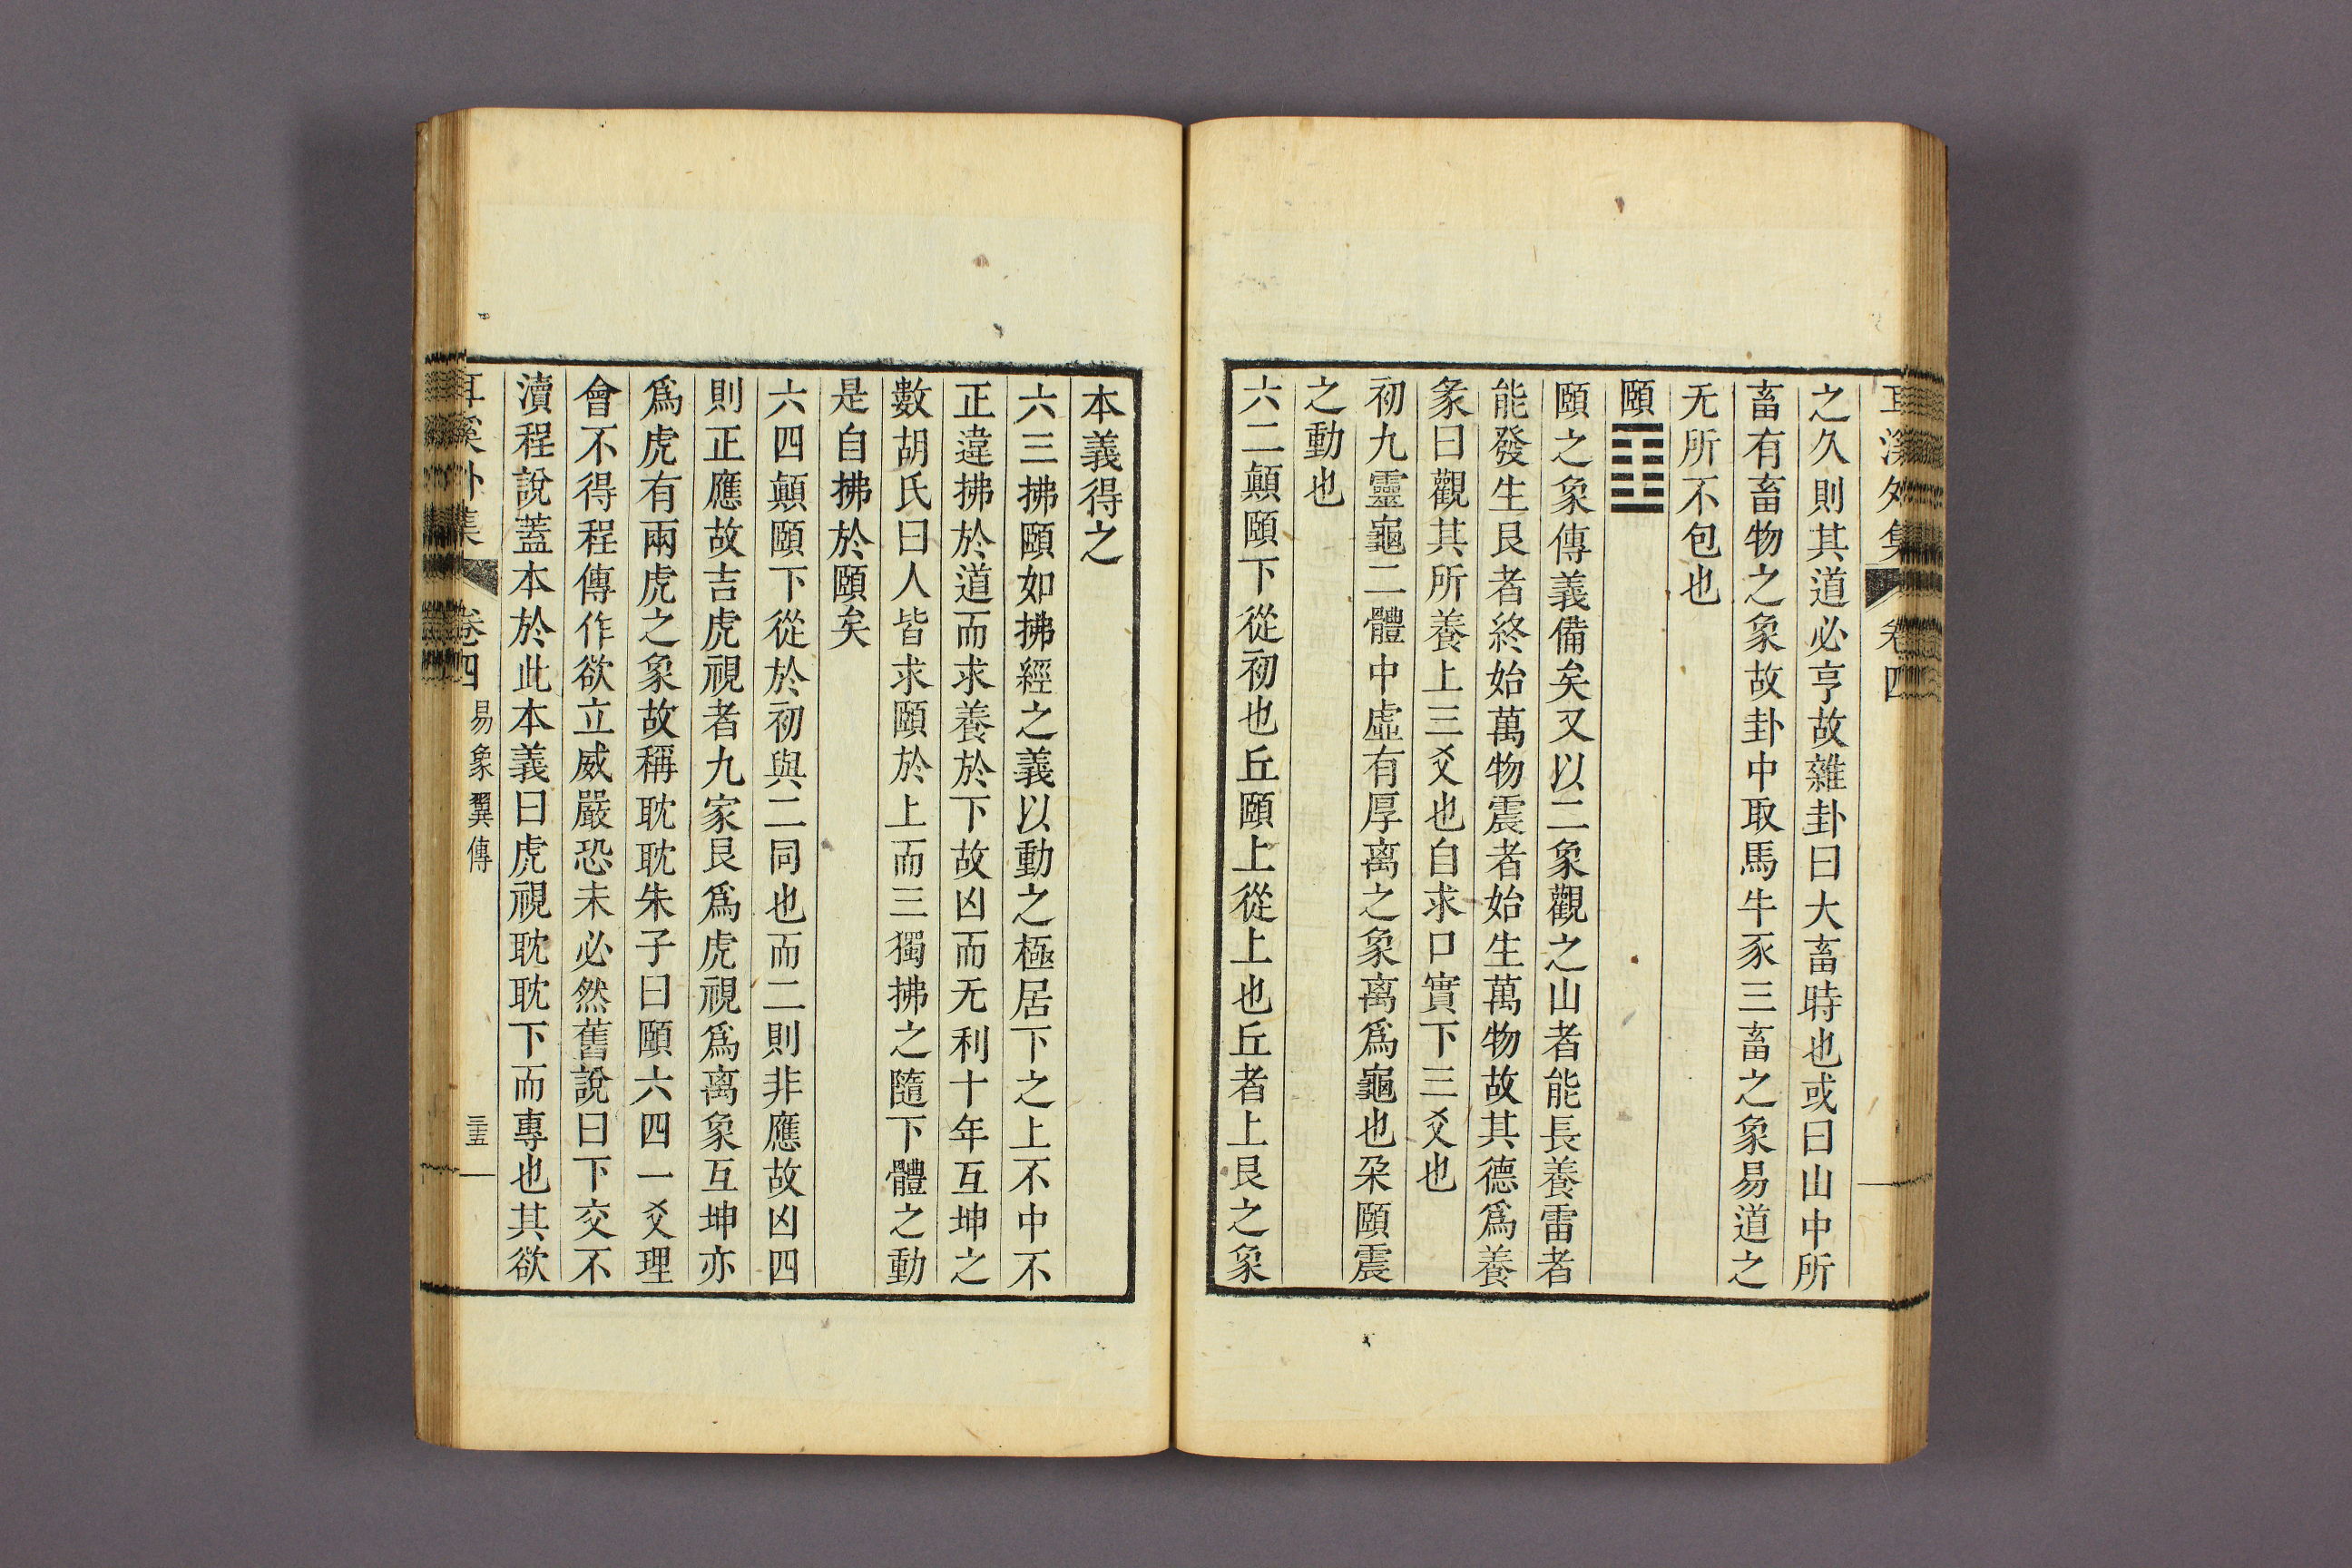 耳溪外集 卷四
之久則其道必亨故雜卦曰大畜時也或曰山中所
畜有畜物之象故卦中取馬牛豕三畜之象易道之
无所不包也
頤䷚
頤之象傳義備矣又以二象觀之山者能長養雷者
能發生艮者終始萬物震者始生萬物故其德爲養
彖曰觀其所養上三爻也自求口實下三爻也
初九靈龜二體中虛有厚离之象离爲龜也朶頤震
之動也
六二顚頤下從初也丘頤上從上也丘者上艮之象
本義得之
六三拂頤如拂經之義以動之極居下之上不中不
正違拂於道而求養於下故凶而无利十年互坤之
數胡氏曰人皆求頤於上而三獨拂之隨下體之動
是自拂於頤矣
六四顚頤下從於初與二同也而二則非應故凶四
則正應故吉虎視者九家艮爲虎視爲离象互坤亦
爲虎有兩虎之象故稱耽耽朱子曰頤六四一爻理
會不得程傳作欲立威嚴恐未必然舊說曰下交不
瀆程說蓋本於此本義曰虎視耽耽下而專也其欲
耳溪外集 卷四 易象翼傳 三十五